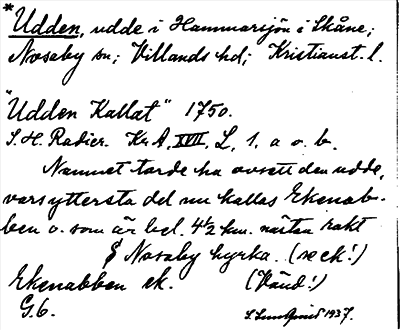 *Udden, udde i Hammarsjön i Skåne;
Nosaby sn; Villands hd; Kristianst. l.
"Udden Kallat" 1750.
S. H. Radier. Kr A, XVII, L, 1, a o. b.
Namnet torde ha avsett den udde,
vars yttersta del nu kallas Ekenab-
ben o. som är bel. 4½ km. nästan rakt
S Nosaby kyrka. (se ek!)
Ekenabben ek. (Vänd!)
G.b. S. Lundqvist 1937.